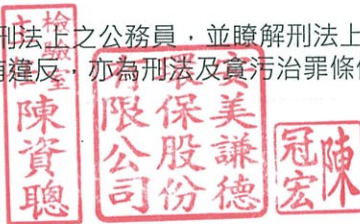 刑法上之公務員，並瞭解刑法上
違反，亦為刑法及貪污治罪條
檢驗室
主任
陳資聰
安美謙德
環保股份
有限公司
陳
冠宏